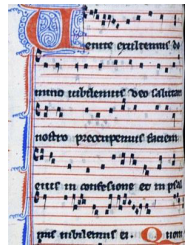 Uenite exultemus do
mino iubilemus deo salutari
nostro preocupemus faciem
eius in confesione et in psal
mis iubilemus ei. Quoni